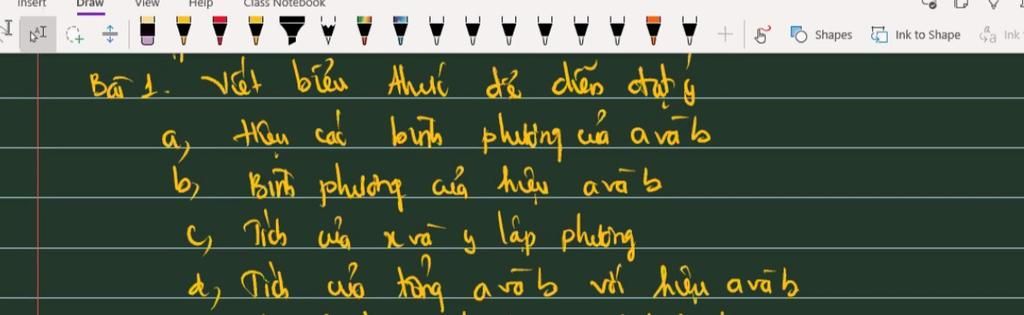 Insert Draw View Help Class Notebook
Shapes Ink to Shape Ink
Bài 1. Viết biểu thức để diễn đạt ý
a, Hiệu các bình phương của a và b
b, Bình phương của hiệu a và b
c, Tích của x và y lập phương
d, Tích của tổng a và b với hiệu a và b